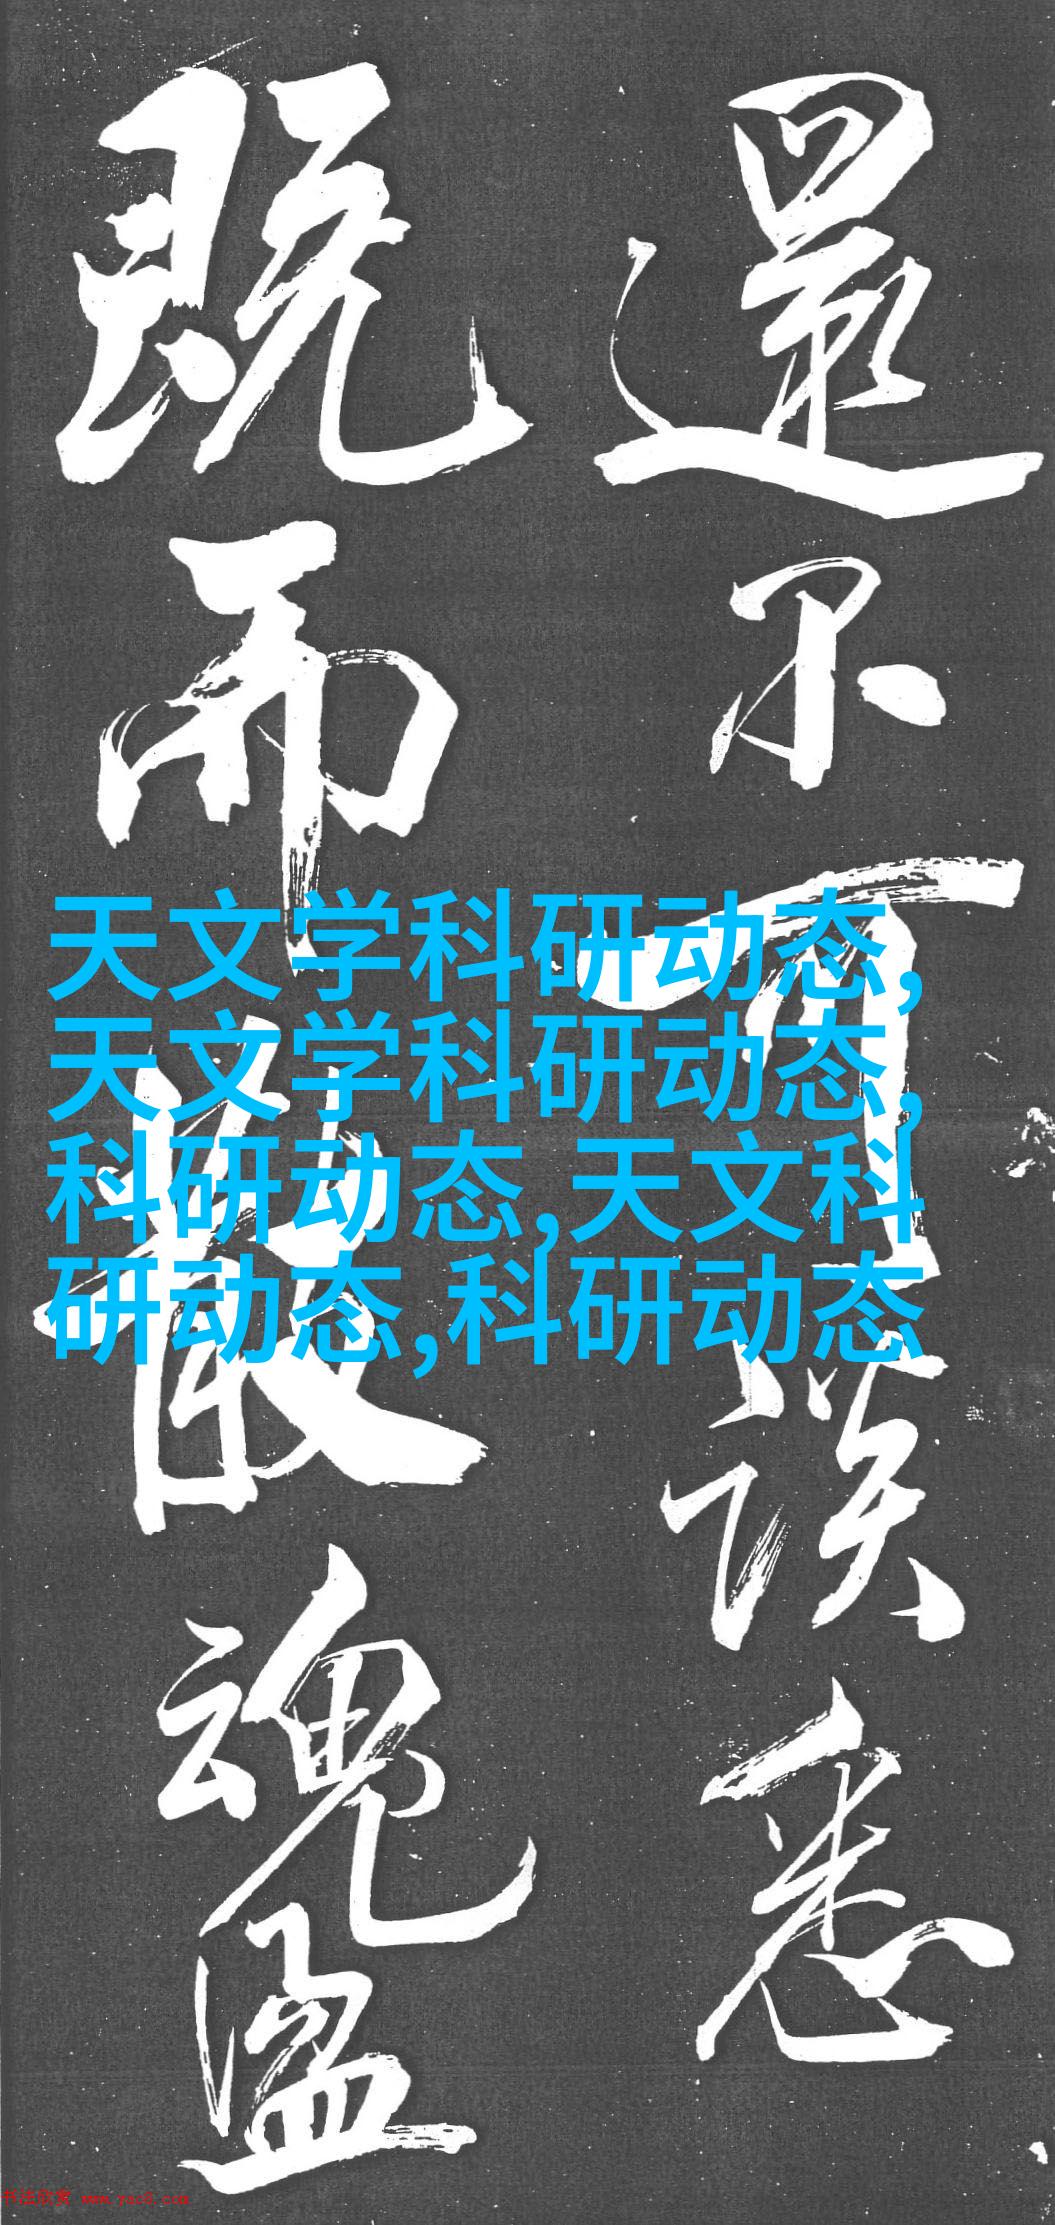 還不可誤悉
既而散魂盪
天文学科研动态,
天文学科研动态,
科研动态,天文科
研动态,科研动态
书法欣赏 www.yac8.com